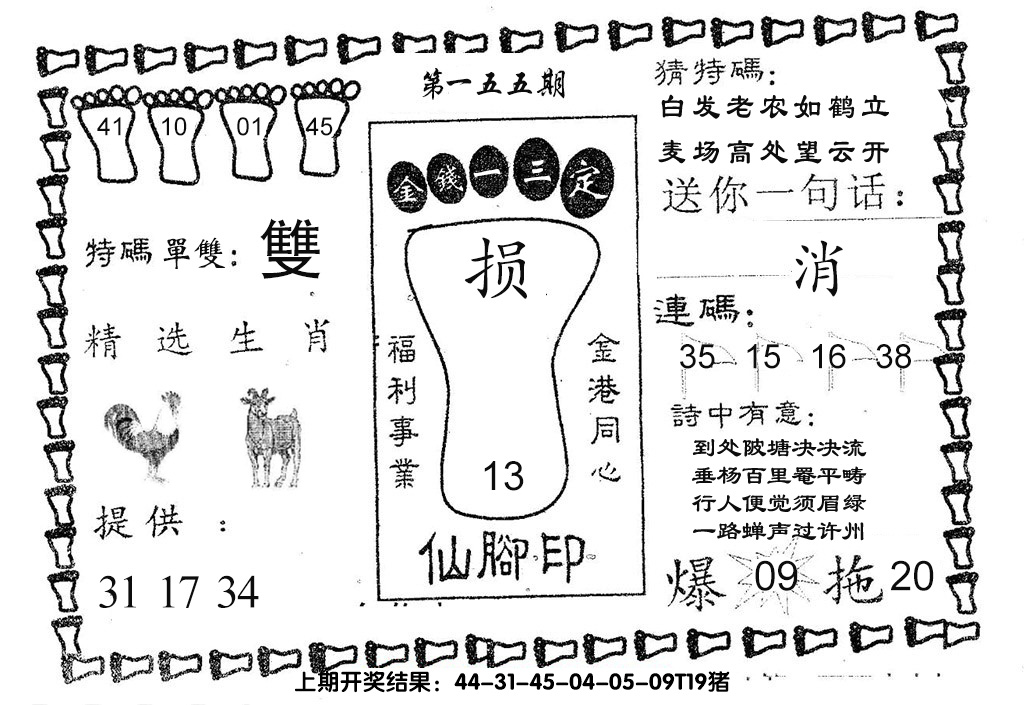 第一五五期
41 10 01 45
特碼單雙：雙
精选生肖
提供：
31 17 34
金錢一三定
损
福利事業
金港同心
13
仙腳印
猜特碼：
白发老农如鹤立
麦场高处望云开
送你一句话：
消
連碼：
35 15 16 38
詩中有意：
到处陂塘决决流
垂杨百里罨平畴
行人便觉须眉绿
一路蝉声过许州
爆 09 拖 20
上期开奖结果：44-31-45-04-05-09T19猪